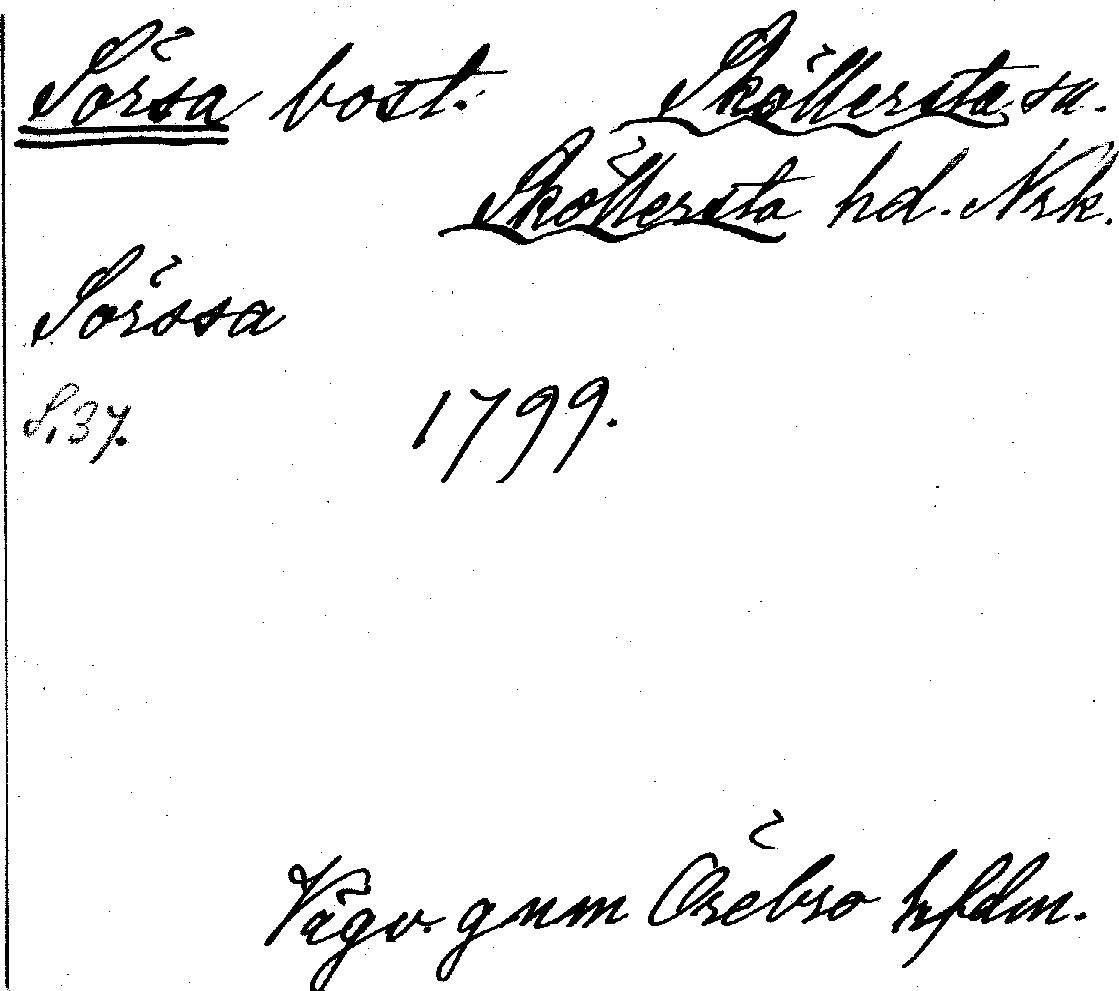 Sörsa bost. Sköllersta sn.
Sköllersta hd. Nrk.
Sörssa
S. 37. 1799.
Vägv. gnm Örebro hfdm.